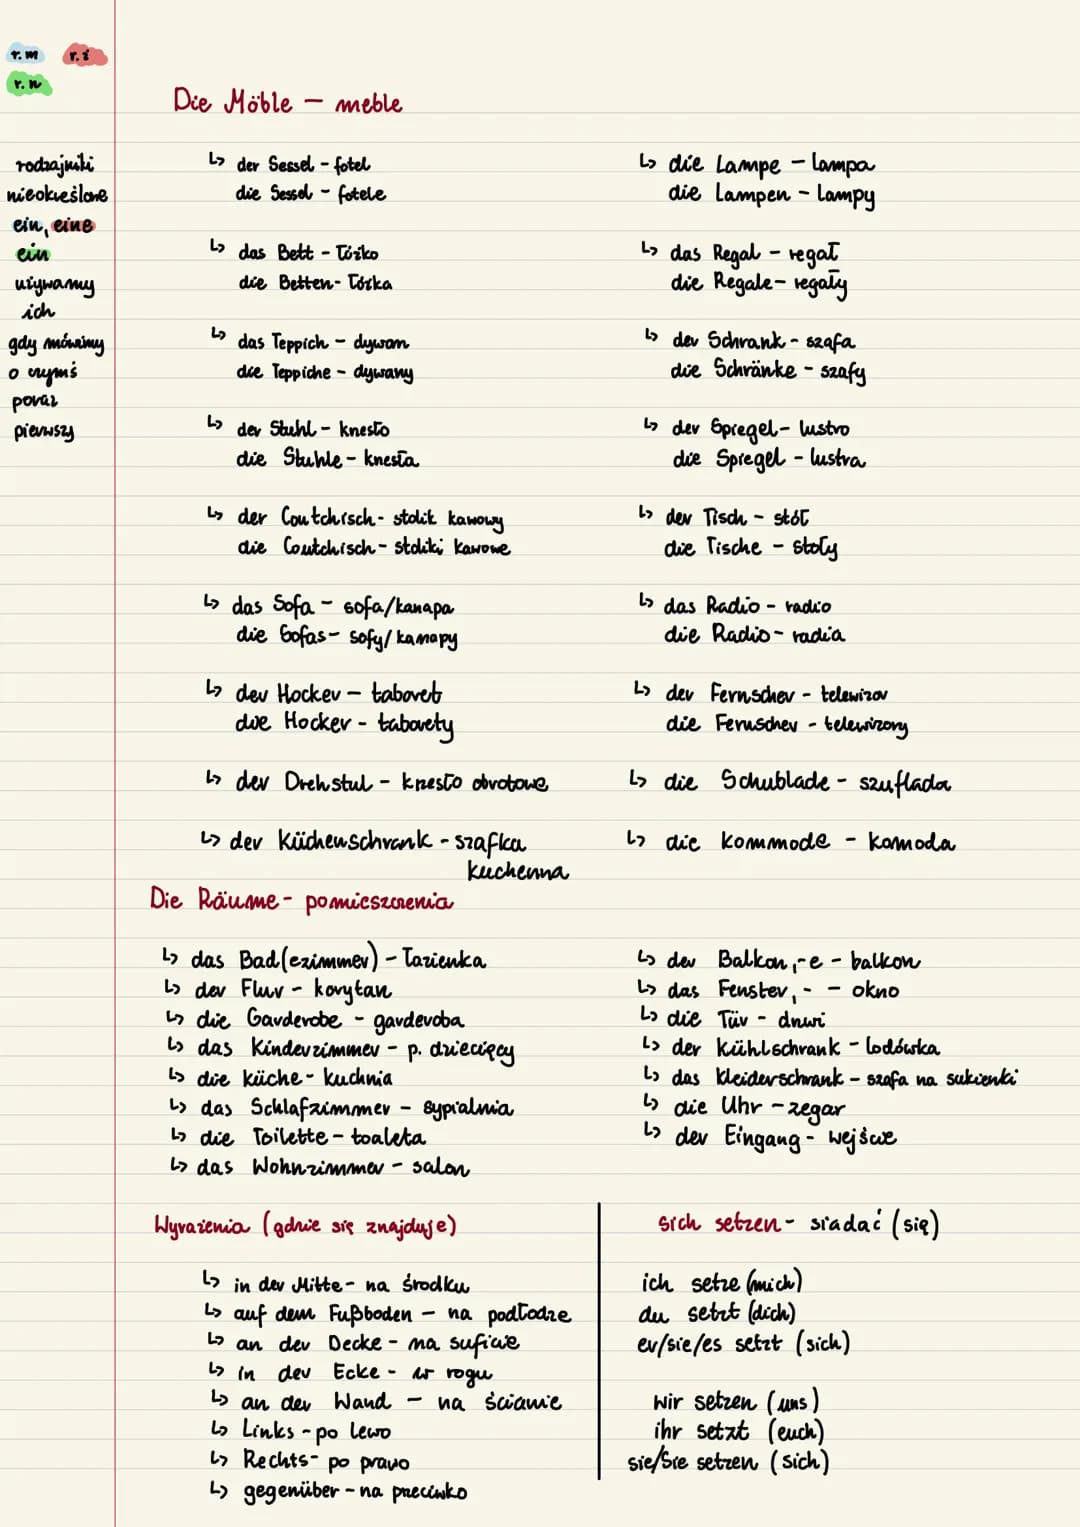 r.m r.ż
r.n
rodzajniki
nieokreślone
ein, eine
ein
używamy
ich
gdy mówimy
o czymś
poraz
pierwszy
Die Möble – meble
↳ der Sessel - fotel
die Sessel - fotele
↳ das Bett - łóżko
die Betten - łóżka
↳ das Teppich - dywan
die Teppiche - dywany
↳ der Stuhl - krzesło
die Stuhle - krzesła
↳ der Coutchisch - stolik kawowy
die Coutchisch - stoliki kawowe
↳ das Sofa - sofa/kanapa
die Sofas - sofy/kanapy
↳ der Hocker - taboret
die Hocker - taborety
↳ der Drehstul - krzesło obrotowe
↳ der Küchenschrank - szafka
kuchenna
↳ die Lampe - lampa
die Lampen - lampy
↳ das Regal - regał
die Regale - regały
↳ der Schrank - szafa
die Schränke - szafy
↳ der Spiegel - lustro
die Spiegel - lustra
↳ der Tisch - stół
die Tische - stoły
↳ das Radio - radio
die Radio - radia
↳ der Fernseher - telewizor
die Fernseher - telewizory
↳ die Schublade - szuflada
↳ die kommode - komoda
Die Räume - pomieszczenia
↳ das Bad(ezimmer) - łazienka
↳ der Flur - korytarz
↳ die Garderobe - garderoba
↳ das Kinderzimmer - p. dziecięcy
↳ die küche - kuchnia
↳ das Schlafzimmer - sypialnia
↳ die Toilette - toaleta
↳ das Wohnzimmer - salon
↳ der Balkon,-e - balkon
↳ das Fenster, - - okno
↳ die Tür - drzwi
↳ der Kühlschrank - lodówka
↳ das kleiderschrank - szafa na sukienki
↳ die Uhr - zegar
↳ der Eingang - wejście
Wyrażenia (gdzie się znajduje)
↳ in der Mitte - na środku
↳ auf dem Fußboden - na podłodze
↳ an der Decke - na suficie
↳ in der Ecke - w rogu
↳ an der Wand - na ścianie
↳ Links - po lewo
↳ Rechts - po prawo
↳ gegenüber - na przeciwko
sich setzen - siadać (się)
ich setze (mich)
du setzt (dich)
er/sie/es setzt (sich)
wir setzen (uns)
ihr setzt (euch)
sie/Sie setzen (sich)